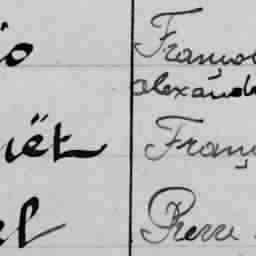 io Françoi
alexand
iët Franç
el Pierre